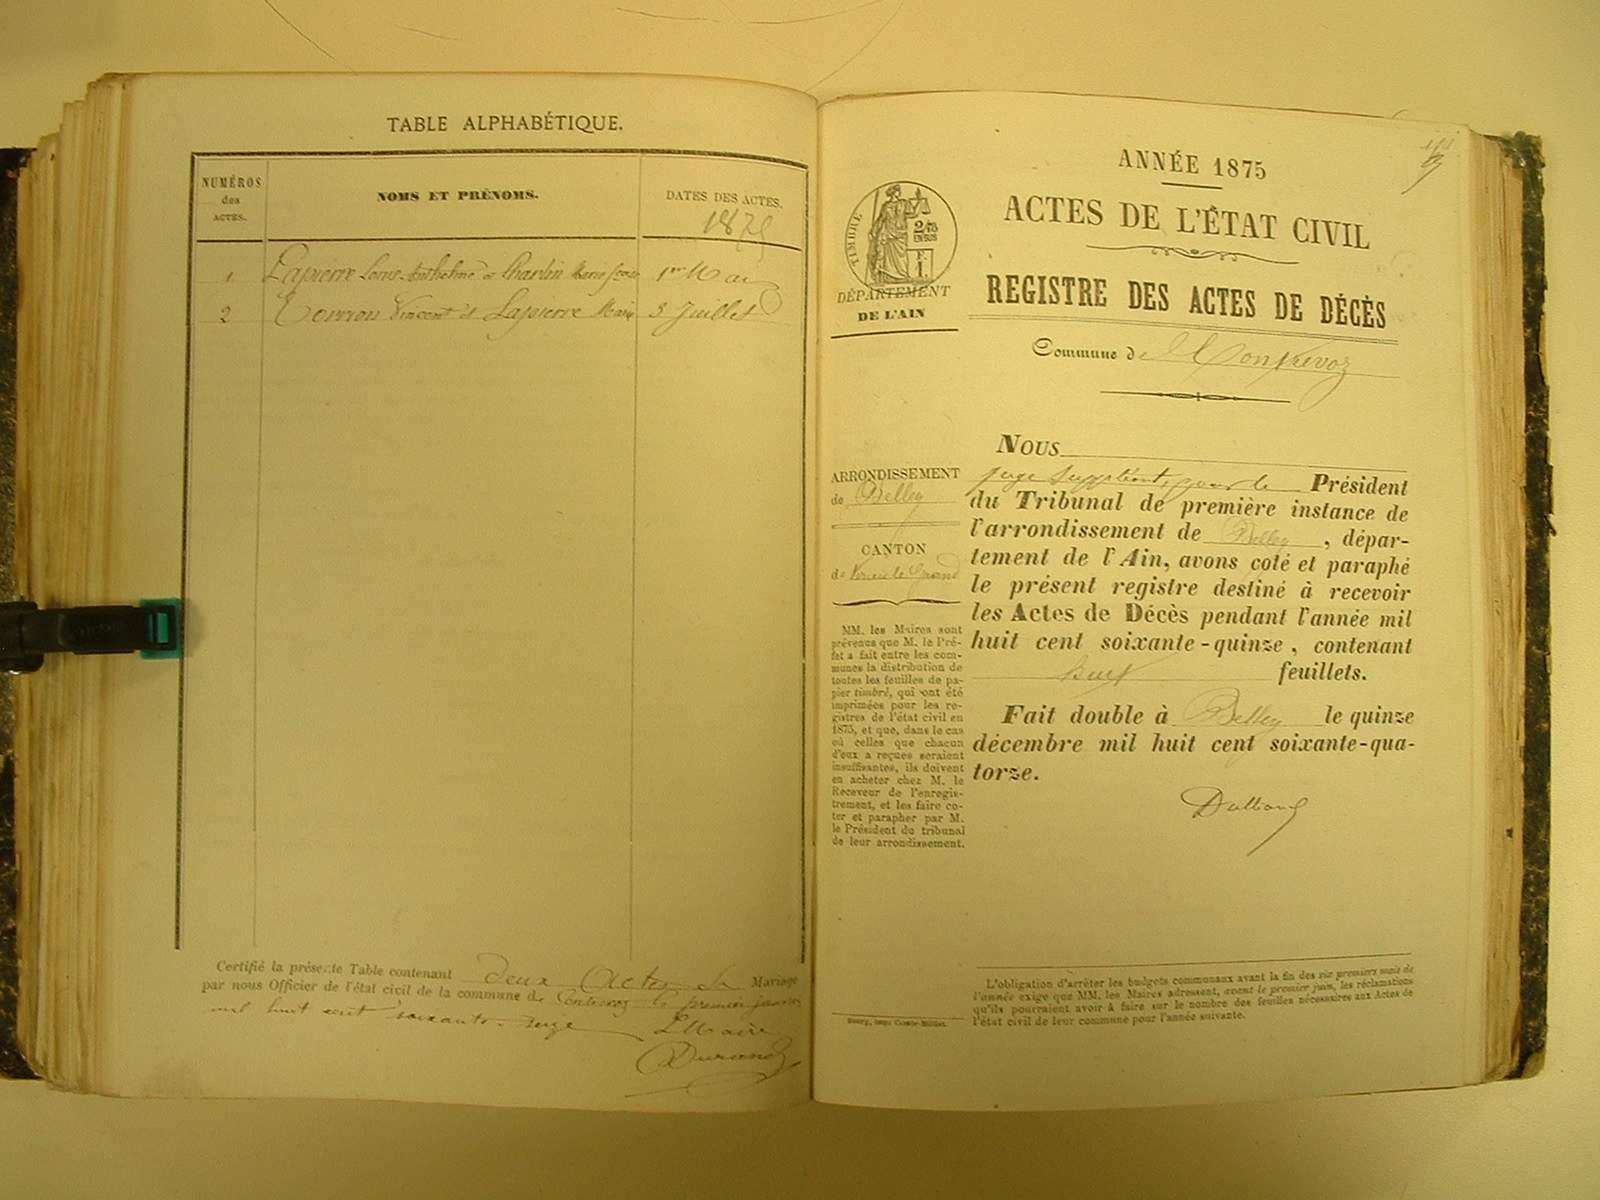 TABLE ALPHABÉTIQUE.
NUMÉROS
des
ACTES.
NOMS ET PRÉNOMS.
DATES DES ACTES.
1875
1 Lapierre Louis Anthelme & Charlin Marie 1er Mai
2 Vincent et Lapierre Marie 3 Juillet
Certifié la présente Table contenant deux Actes de Mariage
par nous Officier de l'état civil de la commune de Contrevoz le premier janvier
mil huit cent soixante-seize Le Maire
Durand
ANNÉE 1875
ACTES DE L'ÉTAT CIVIL
REGISTRE DES ACTES DE DÉCÈS
Commune de Contrevoz
TIMBRE
DÉPARTEMENT
DE L'AIN
ARRONDISSEMENT
de Belley
CANTON
de Virieu le Grand
MM. les Maires sont
prévenus que M. le Pré-
fet a fait entre les com-
munes la distribution de
toutes les feuilles de pa-
pier timbré, qui ont été
imprimées pour les re-
gistres de l'état civil en
1875, et que, dans le cas
où celles que chacun
d'eux a reçues seraient
insuffisantes, ils doivent
en acheter chez M. le
Receveur de l'enregis-
trement, et les faire co-
ter et parapher par M.
le Président du tribunal
de leur arrondissement.
NOUS
juge suppléant, pour le Président
du Tribunal de première instance de
l'arrondissement de Belley, dépar-
tement de l'Ain, avons coté et paraphé
le présent registre destiné à recevoir
les Actes de Décès pendant l'année mil
huit cent soixante-quinze, contenant
huit feuillets.
Fait double à Belley le quinze
décembre mil huit cent soixante-qua-
torze.
L'obligation d'arrêter les budgets communaux avant la fin des six premiers mois de
l'année exige que MM. les Maires adressent, avant le premier juin, les réclamations
qu'ils pourraient avoir à faire sur le nombre des feuilles nécessaires aux Actes de
l'état civil de leur commune pour l'année suivante.